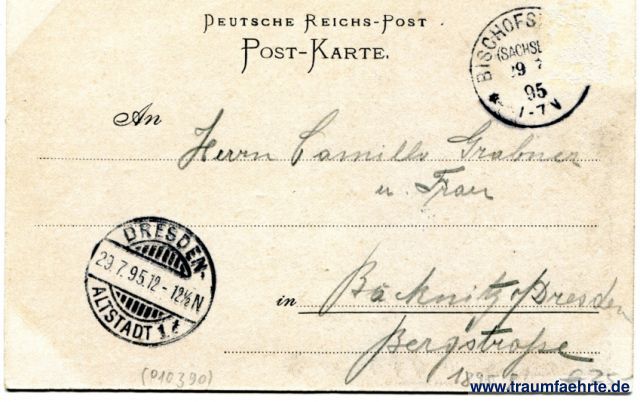 DEUTSCHE REICHS-POST
POST-KARTE.
BISCHOFS
(SACHSE
29 7
95
7-7N
An
Herrn Camillo Grabner
u. Frau
DRESDEN-
29.7.95.12-12½N
ALTSTADT 1
in Räcknitz Dresden
Bergstraße
(010390)
1895
www.traumfaehrte.de